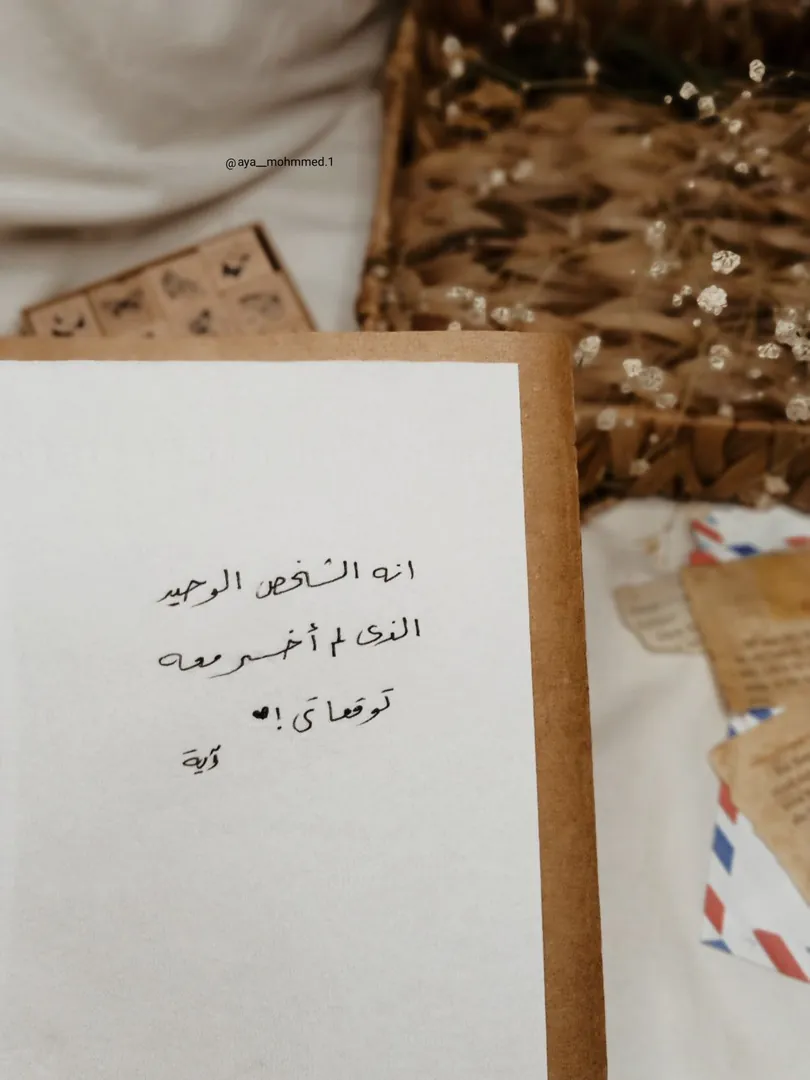 @aya__mohmmed.1
انه الشخص الوحيد
الذى لم أخسر معه
توقعاتى !♥
آية